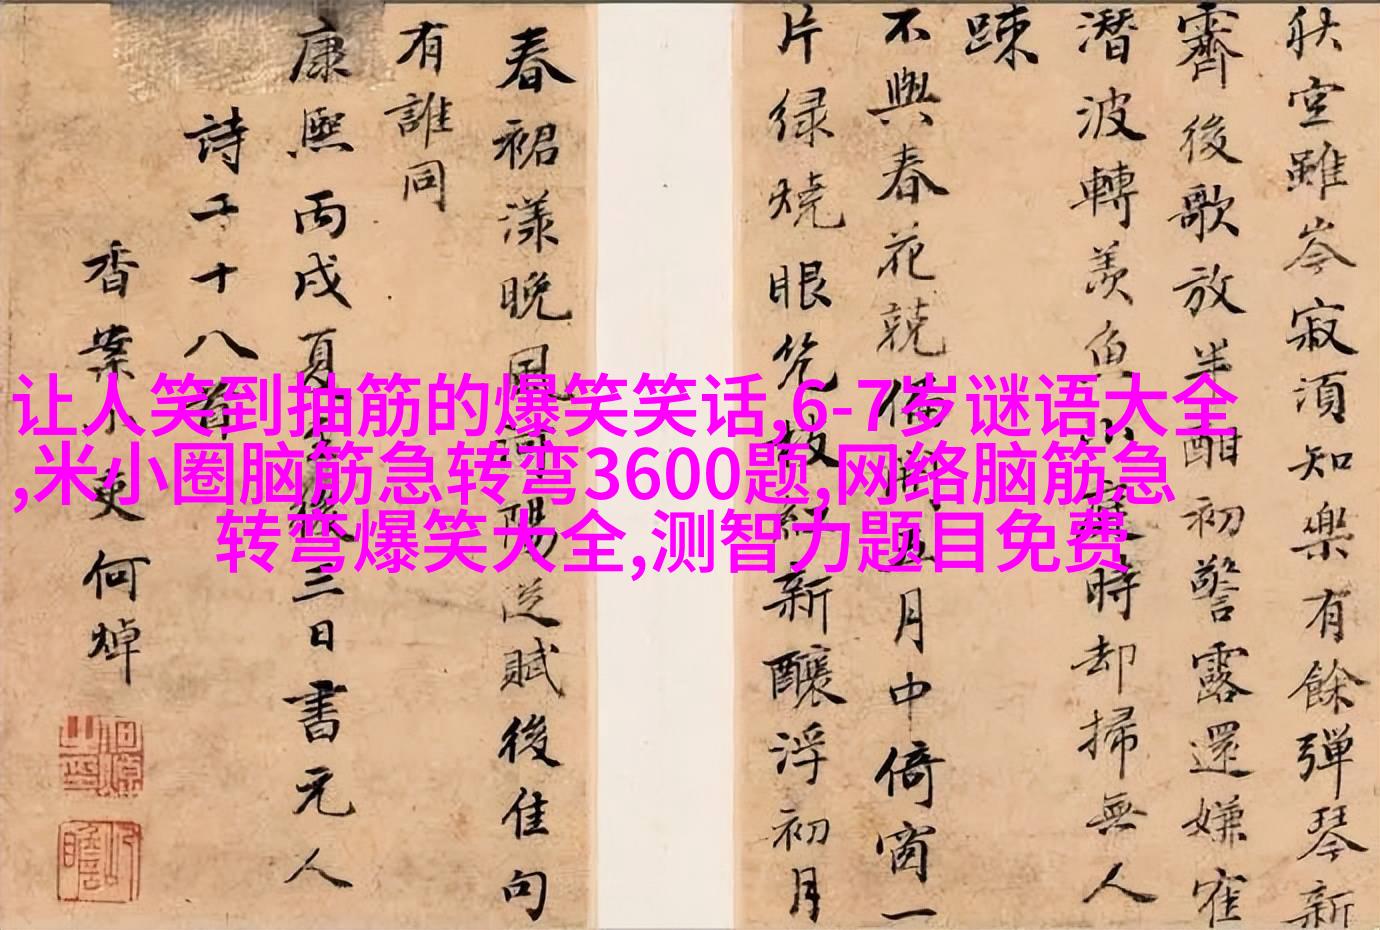 秋空雖岑寂須知樂有餘彈琴新
霽後歌放半酣初警露還嫌
潛波轉羨魚時却掃無人
踈
不與春花競開五月中倚窗一
片緑燒眼新釀浮初月
春裙漾晚風陽從賦後佳句
有誰同
康熙丙戌夏後三日書元人
詩二十八首
香案小吏何焯
让人笑到抽筋的爆笑笑话,6-7岁谜语大全
,米小圈脑筋急转弯3600题,网络脑筋急
转弯爆笑大全,测智力题目免费